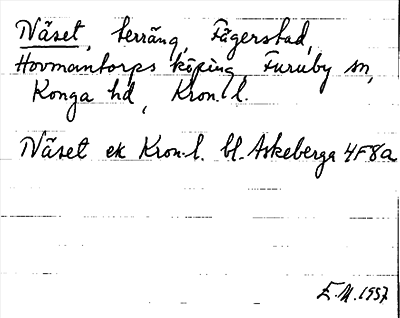 Näset, terräng, Fägerstad,
Hovmantorps köping, Furuby sn,
Konga hd, Kron. l.
Näset ek Kron. l. bl. Askeberga 4F8a
E.M. 1957